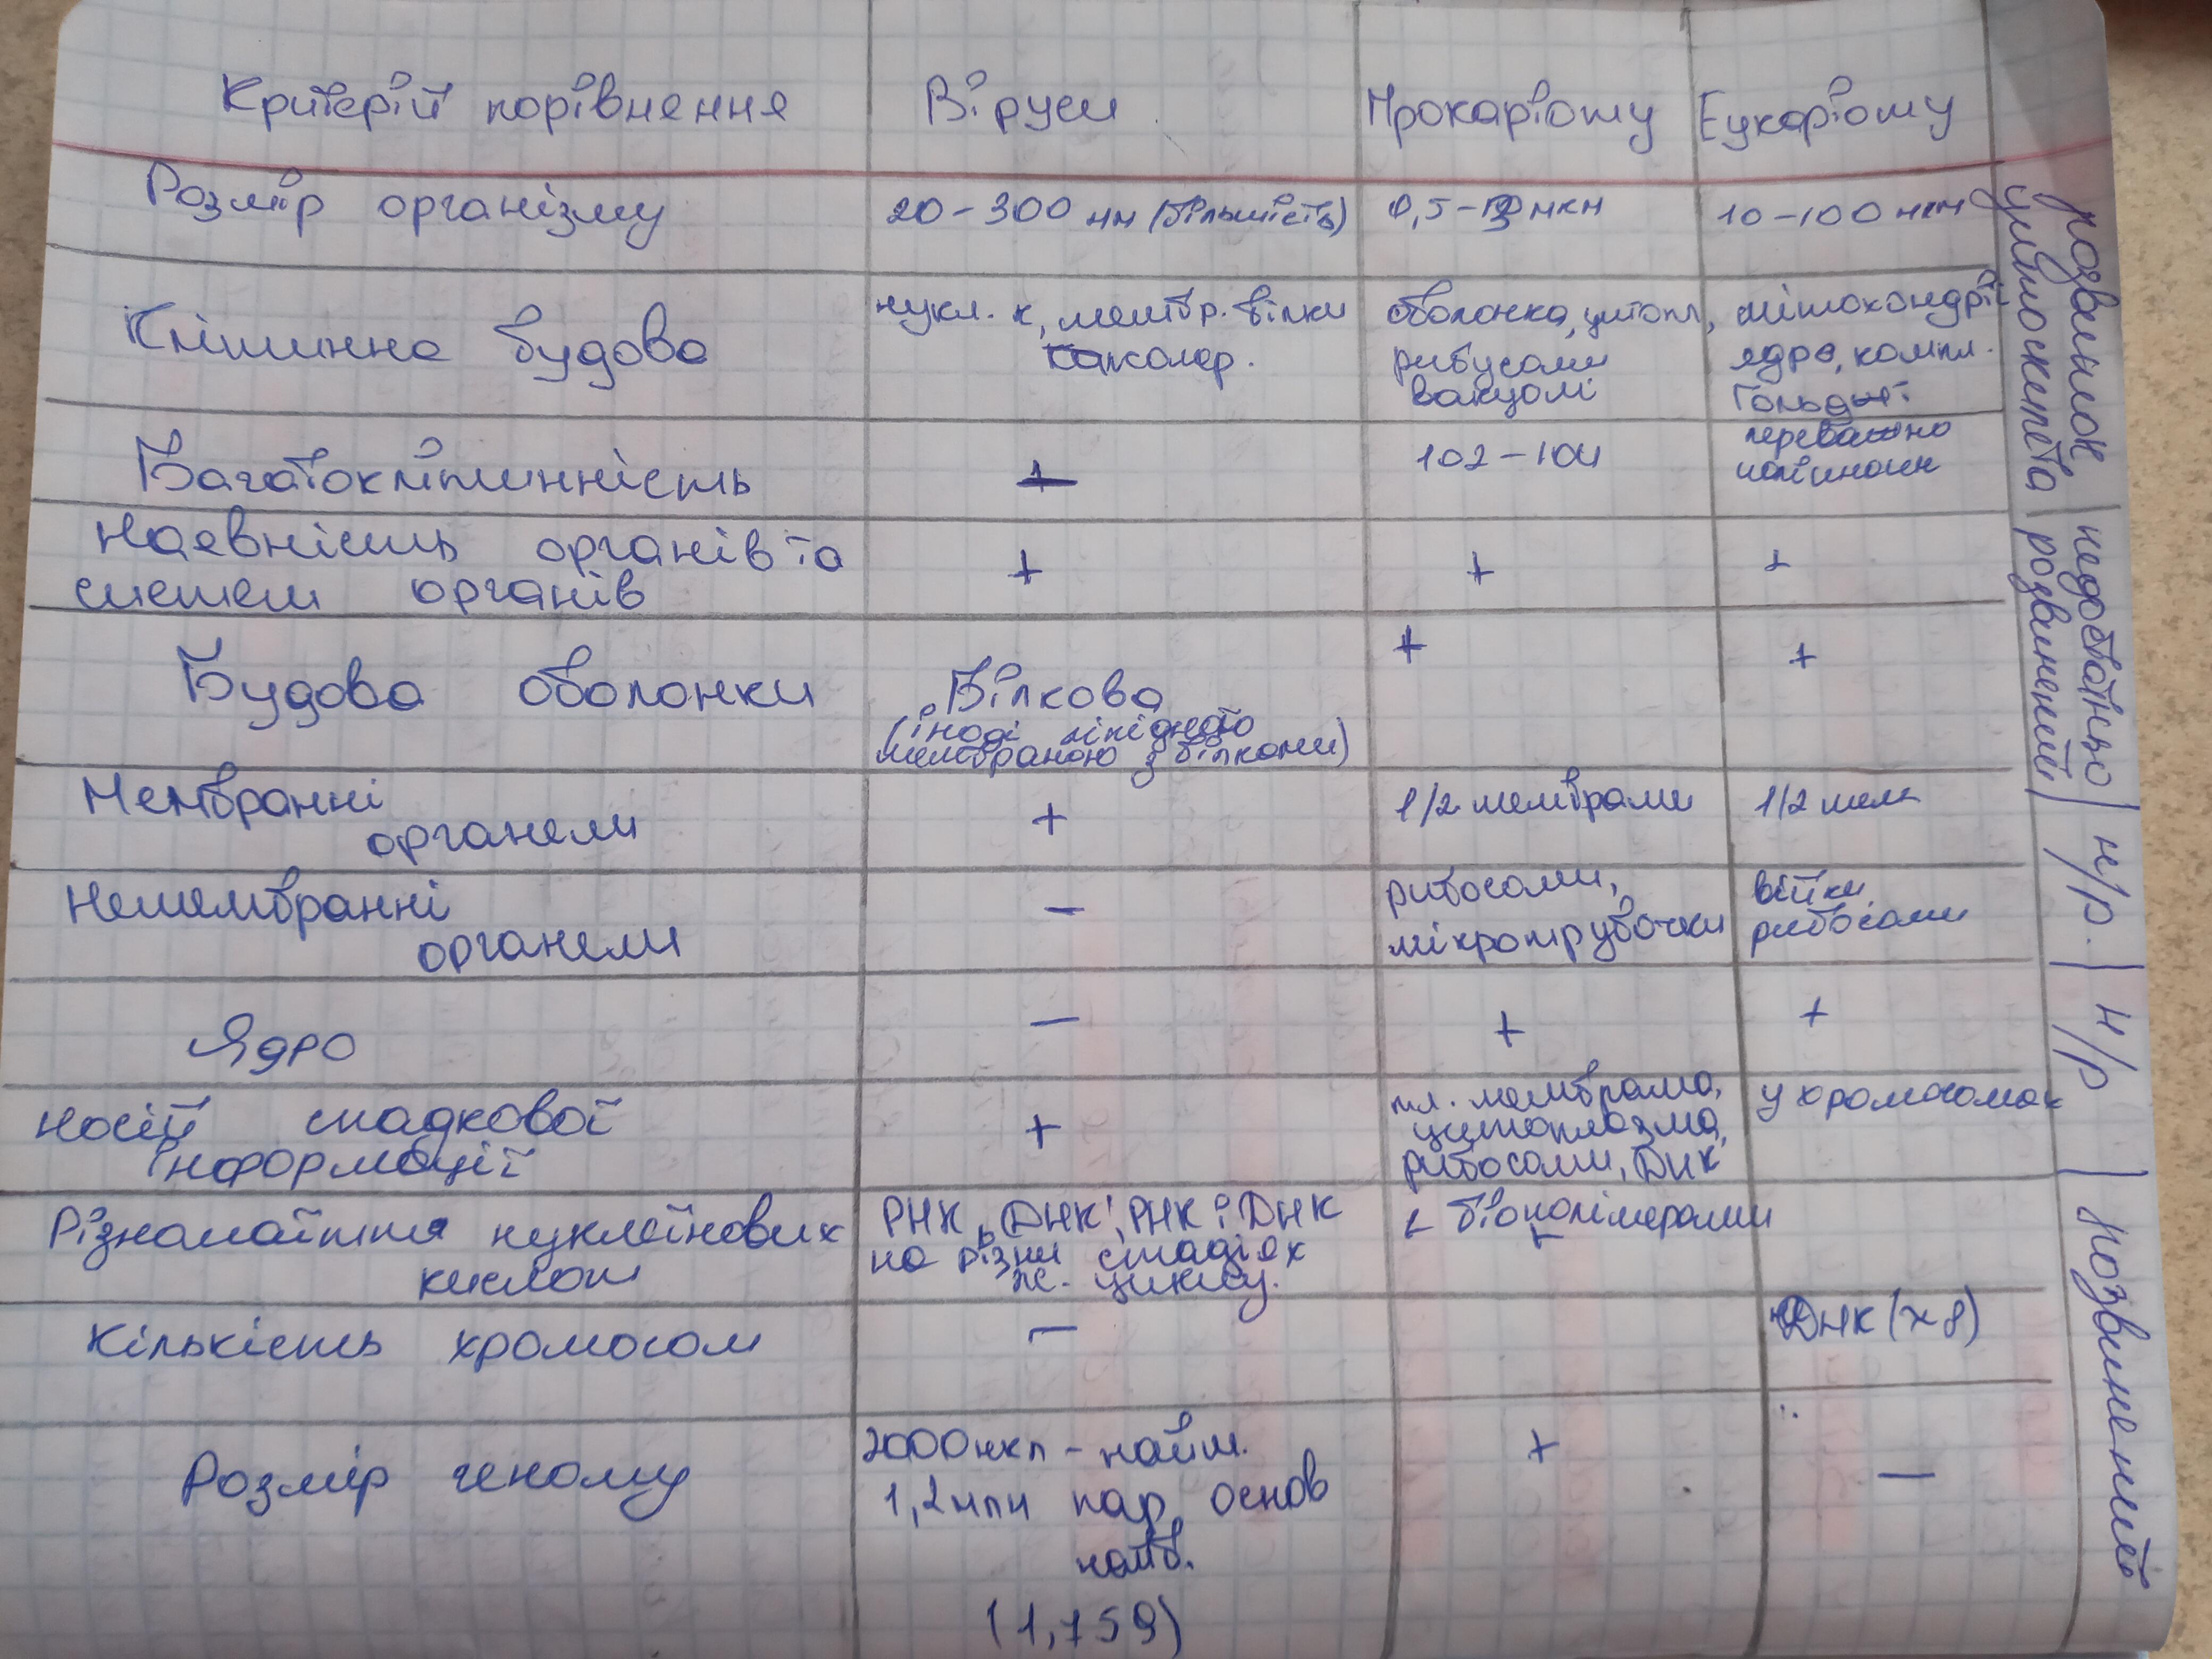 Критерій порівняння Віруси Прокаріоти Еукаріоти
Розмір організму 20-300 нм (більшість) 0,5- мкм 10-100 мкм
Клітинна будова нукл. к, мембр. білки оболонка, цитопл, мітохондрії
капсомер. рибусоми ядро, компл.
вакуолі Гольджі.
Багатоклітинність 102-104 переважно
Наявність органів та
систем органів + + +
Будова оболонки Білкова + +
(іноді ліпідною
мембраною з білками)
Мембранні
органели + 1/2 мембрами 1/2 мем
Немембранні
органели - рибосоми, війки,
мікротрубочки рибосоми
Ядро - + +
Носій спадкової
інформації + пл. мембрама, у хромосомах
цитоплазма,
рибосоми, ДНК
Різномаїття нуклеїнових
кислот РНК, ДНК, РНК і ДНК є біополімерами
на різни стадіях
ж. циклу.
Кількість хромосом - ДНК (x8)
Розмір геному 2000нкл - найм. + -
1,2 млн пар основ
найб.
(1,759)
цитоскелета розвинений
недостатньо
н/р.
н/р
розвинений